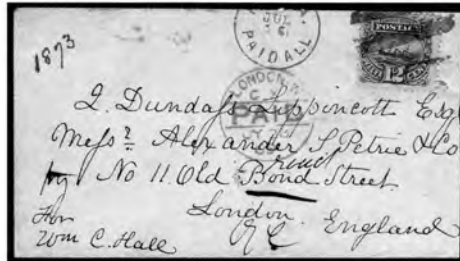 1873
JUL
PAID ALL
POSTAGE
12
LONDON
PAID
J. Dundass Lippincott Esq
Messrs. Alexander S. Petrie & Co
No 11. Old Bond Street
London England
For
Wm C. Hall